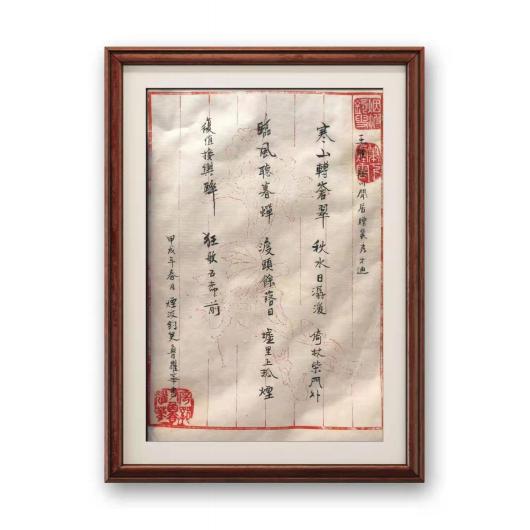 王維輞川閒居贈裴秀才迪
寒山轉蒼翠 秋水日潺湲 倚杖柴門外
臨風聽暮蟬 渡頭餘落日 墟里上孤煙
復值接輿醉 狂歌五柳前
甲戌年春月 煙波釣叟魯